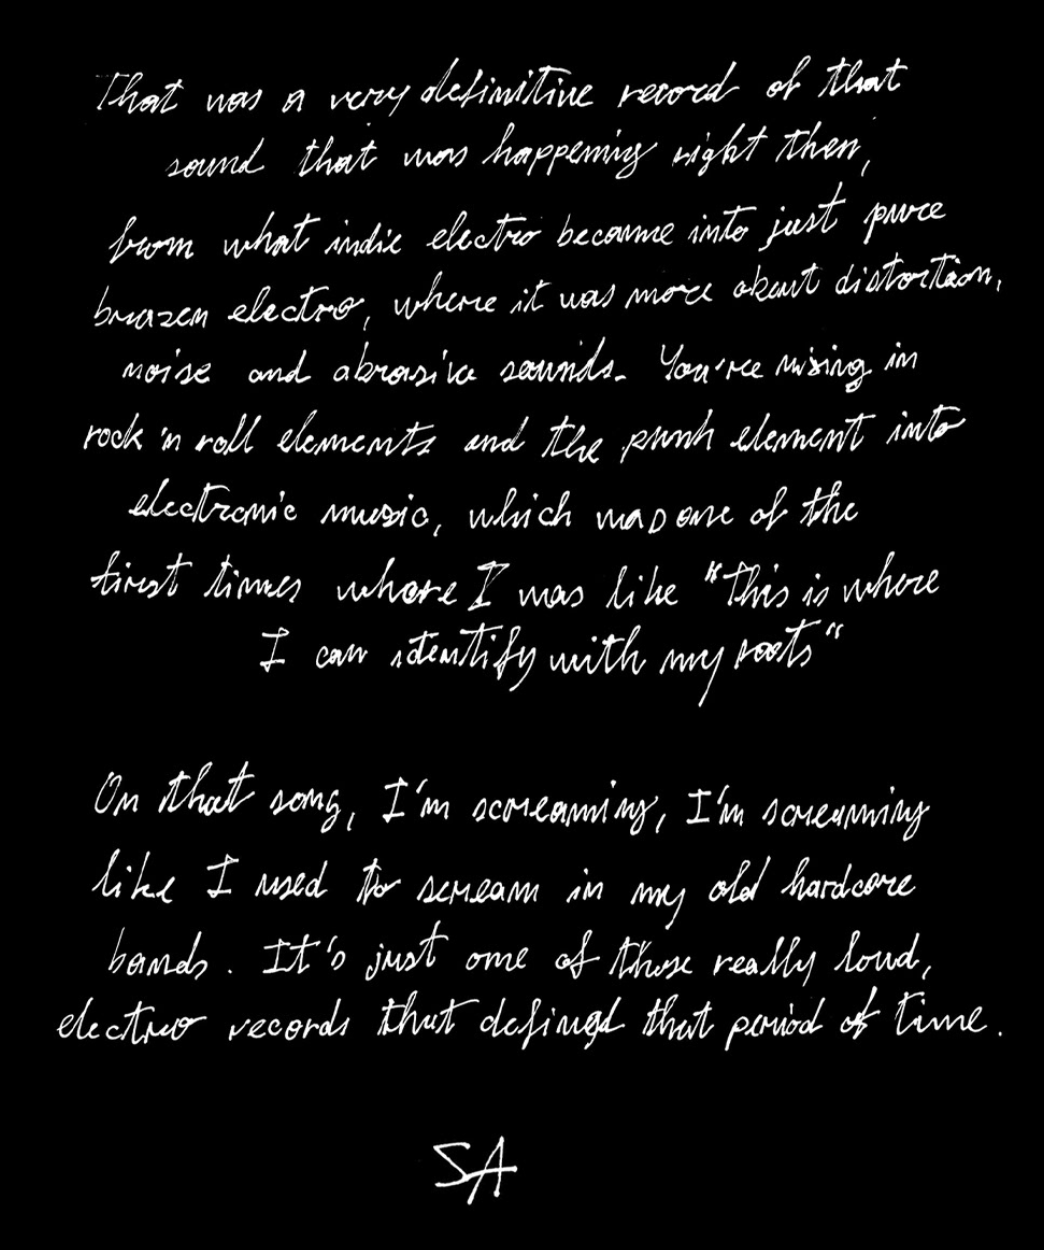 That was a very definitive record of that
sound that was happening right then,
from what indie electro became into just pure
brazen electro, where it was more about distortion,
noise and abrasive sounds. You're mixing in
rock 'n roll elements and the punk element into
electronic music, which was one of the
first times where I was like "This is where
I can identify with my roots"
On that song, I'm screaming, I'm screaming
like I used to scream in my old hardcore
bands. It's just one of those really loud,
electro records that defined that period of time.
SA